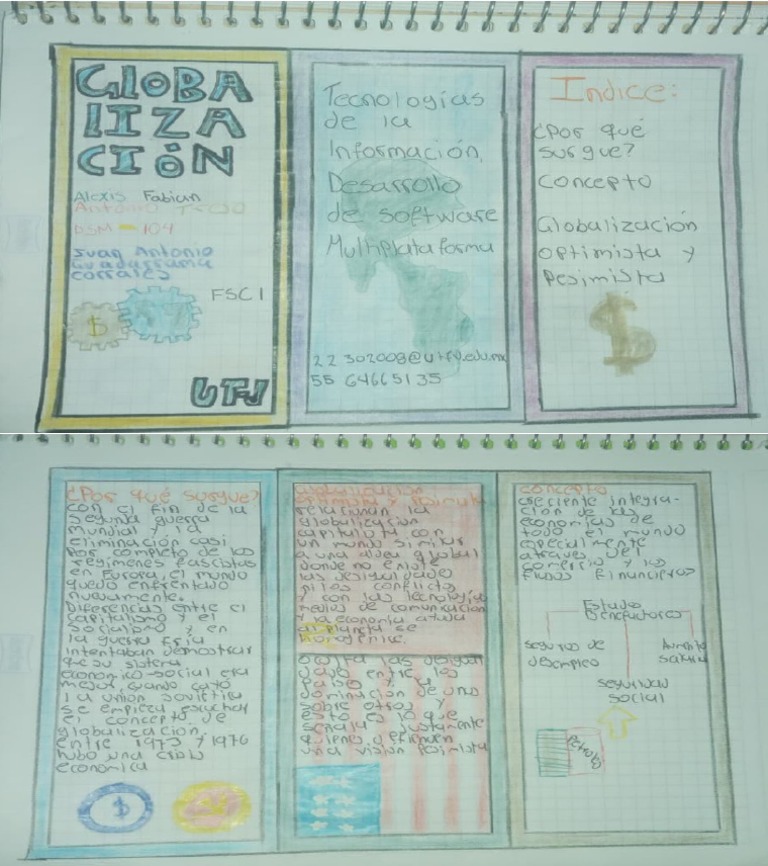 GLOBA
LIZA
CIÓN
Alexis Fabian
Antonio
DSM - 104
Juan Antonio
Guadarrama
Corrales
$
FSCI
UTFV
Tecnologías
de la
Información,
Desarrollo
de software
Multiplataforma
22302008@utfv.edu.mx
55 64665135
Indice:
¿Por qué
surgue?
Concepto
Globalización
optimista y
Pesimista
$
¿Por qué surgue?
con el fin de la
Segunda guerra
mundial y la
eliminación casi
por completo de los
regímenes fascistas
en Europa, el mundo
quedo enfrentado
nuevamente.
Diferencias entre el
capitalismo y el
socialismo y en
la guerra fria
intentaban demostrar
que su sistema
económico-social era
mejor, cuando cayo
la union sovietica
se empieza escuchar
el concepto de
globalización,
entre 1973 y 1976
hubo una crisis
economica
$
Globalización
relacionan la
globalización
capitalista con
un mundo similar
a una aldea global
donde no existe
las desigualdad
ni los conflictos
y con las tecnologías
medios de comunicación
y la economía atada
al planeta se
homogénice.
oculta las desigual
dades entre los
países y la
dominación de unos
sobre otros y
esto es lo que
señala justamente
quienes defienden
una visión pesimista
concepto
creciente integra-
ción de las
economías de
todo el mundo
especialmente
atraves del
comercio y los
flujos financieros
Estado
Benefactores
seguros de
desempleo
Aumento
salarial
seguridad
social
Petroleo